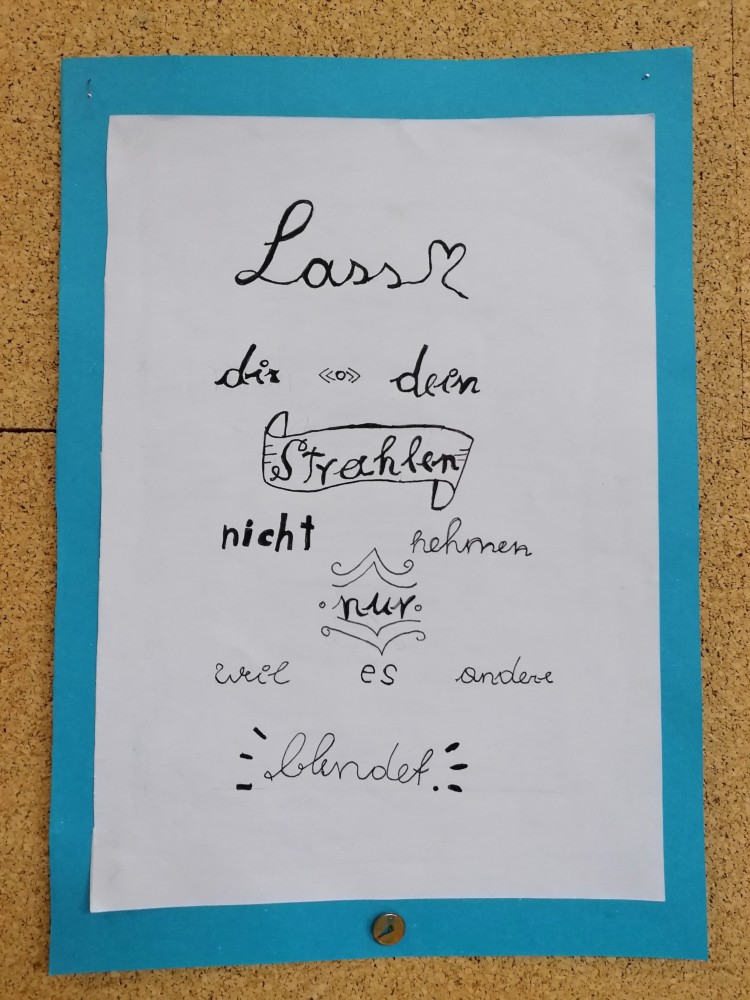 Lass
dir dein
Strahlen
nicht nehmen
nur
weil es andere
blendet.